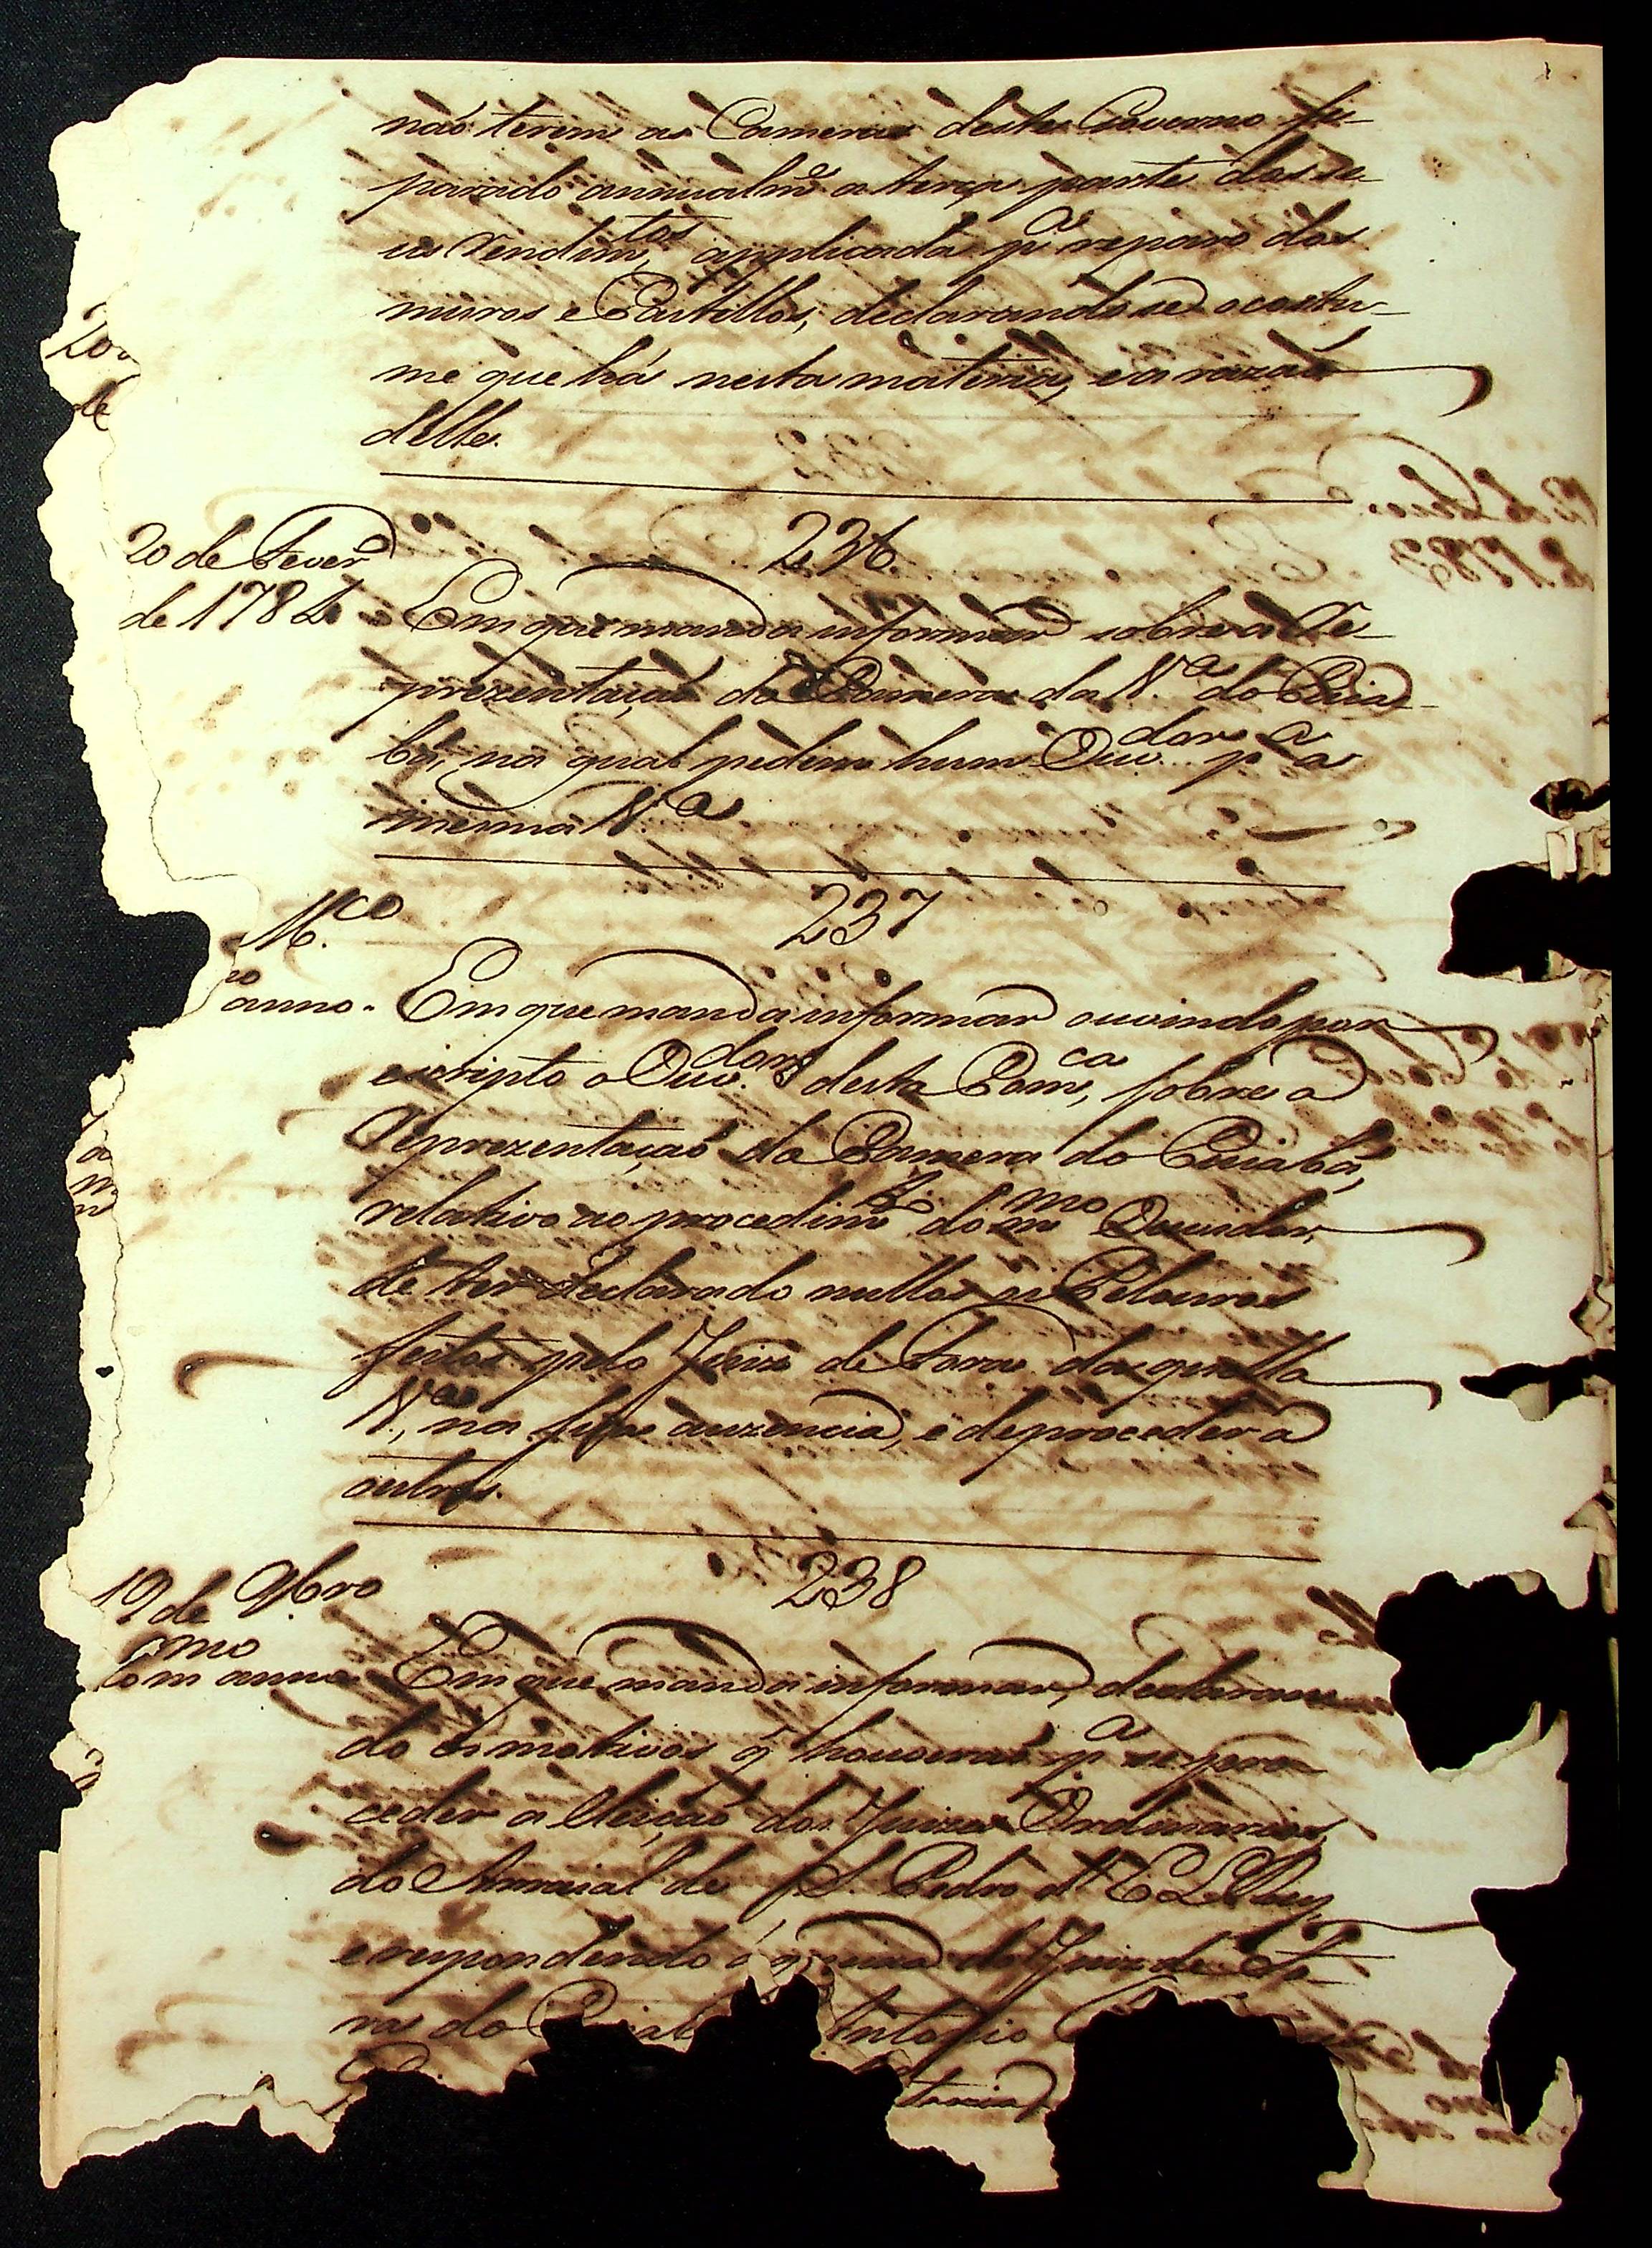 naõ terem as Cameras deste Governo se-
parado annualm.e a terça parte dos se-
us rendim.tos, applicada p.a reparo dos
muros e Castellos, declarando se o costu-
me que há nesta materia, e a razaõ
delle.
20 de Fever.o
de 1784
236
Em que manda informar sobre a Re-
prezentaçaõ da Camera da V.a do Cuia-
bá, na qual pedem hum Ouv.dor p.a a
mesma V.a
M.co
anno.
237
Em que manda informar ouvindo por
escripto o Ouv.dor desta Com.ca, sobre a
Reprezentaçaõ da Camera do Cuiabá,
relativo ao procedim.to do m.mo Ouvidor,
de ter declarado nullos os Pelouros
feitos pelo Juiz de Fora daquella
V.a, na sua auzencia, e de proceder a
outros.
19 de 9bro
do m.mo anno
238
Em que manda informar, declaran-
do os motivos q̃ houveraõ p.a se pro-
ceder a eleiçaõ dos Juizes Ordinarios
do Arraial de S. Pedro d'El Rey,
e respondendo á do Juiz de Fo-
ra do